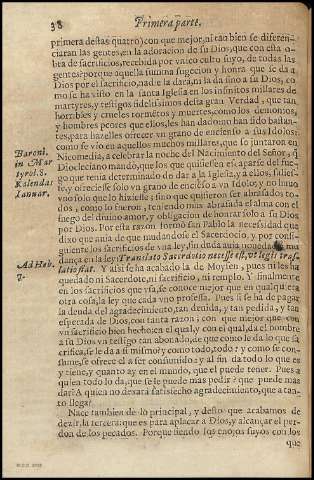 38 Primera parte.
primera destas quatro) con que mejor, ni tan bien se diferen-
ciaran las gentes, en la adoracion de su Dios, que con esta o-
bra de sacrificios, recebida por vnico culto suyo, de todas las
gentes: porque aquella summa sugecion y honra que se dâ a
Dios por el sacrificio, nadie la dara, ni la da sino a su Dios, co
mo se ha visto en la santa Iglesia en los infinitos millares de
martyres, y testigos fidelissimos desta gran Verdad, que tan
horribles y crueles tormētos y muertes, como los demonios,
y hombres peores que ellos, les han dado; no han sido bastan-
tes, para hazelles ofrecer vn grano de encienso a sus Idolos:
como se vio en aquellos muchos millares, que se juntaron en
Nicomedia, a celebrar la noche del Nacimiento del Señor, q̄
Diocleciano mandó, que los que quisiessē escaparse del fue
go que tenia determinado de dar a la Iglesia, y á ellos, saliessē,
y ofreciesse solo vn grano de encieso a vn Idolo; y no huuo
vno solo que lo hiziesse; sino que quisieron ser abrasados to-
dos, como lo fueron, teniendo mas abrasada el alma con el
fuego del diuino amor, y obligacion de honrar solo a su Dios
por Dios. Por esta razon formò san Pablo la necessidad que
dixo que auia de que mudandose el Sacerdocio, y por consi-
guiente los sacrificios de vna ley, sin duda auia mu-
dança en la ley: Translato Sacerdotio necesse est, vt legis tras-
latio fiat. Y assi se ha acabado la de Moysen, pues ni les ha
quedado ni Sacerdote, ni sacrificio, ni templo. Y finalmente
en los sacrificios que vsa, se conoce mejor que en qualquiera
otra cosa, la ley que cada vno professa. Pues si se ha de pagar
la deuda del agradecimiento, tan deuida, y tan pedida, y tan
esperada de Dios, con tanta razon; con que mejor que con
vn sacrificio bien hecho en el qual, y con el qual, da el hombre
a su Dios vn testigo tan abonado, de que como le da lo que sa
crifica, se le da a si mismo? y como todo, todo? y como se con-
sume, se ofrece el a ser consumido y al fin da todo lo que es
y tiene, y quanto ay en el mundo, que el puede tener. Pues a
quien todo lo da, que se le puede mas pedir? que puede mas
dar? A quien no deuará satisfecho agradecimiento, que a tan-
to llega?
Nace tambien de lo principal, y desto que acabamos de
dezir, la tercera: que es para aplacar a Dios, y alcançar el per-
don de los pecados. Porque siendo los enojos suyos con los
que
Baroni.
in Mar
tyrol. 8.
Kalendas
Ianuar.
Ad Heb.
7.